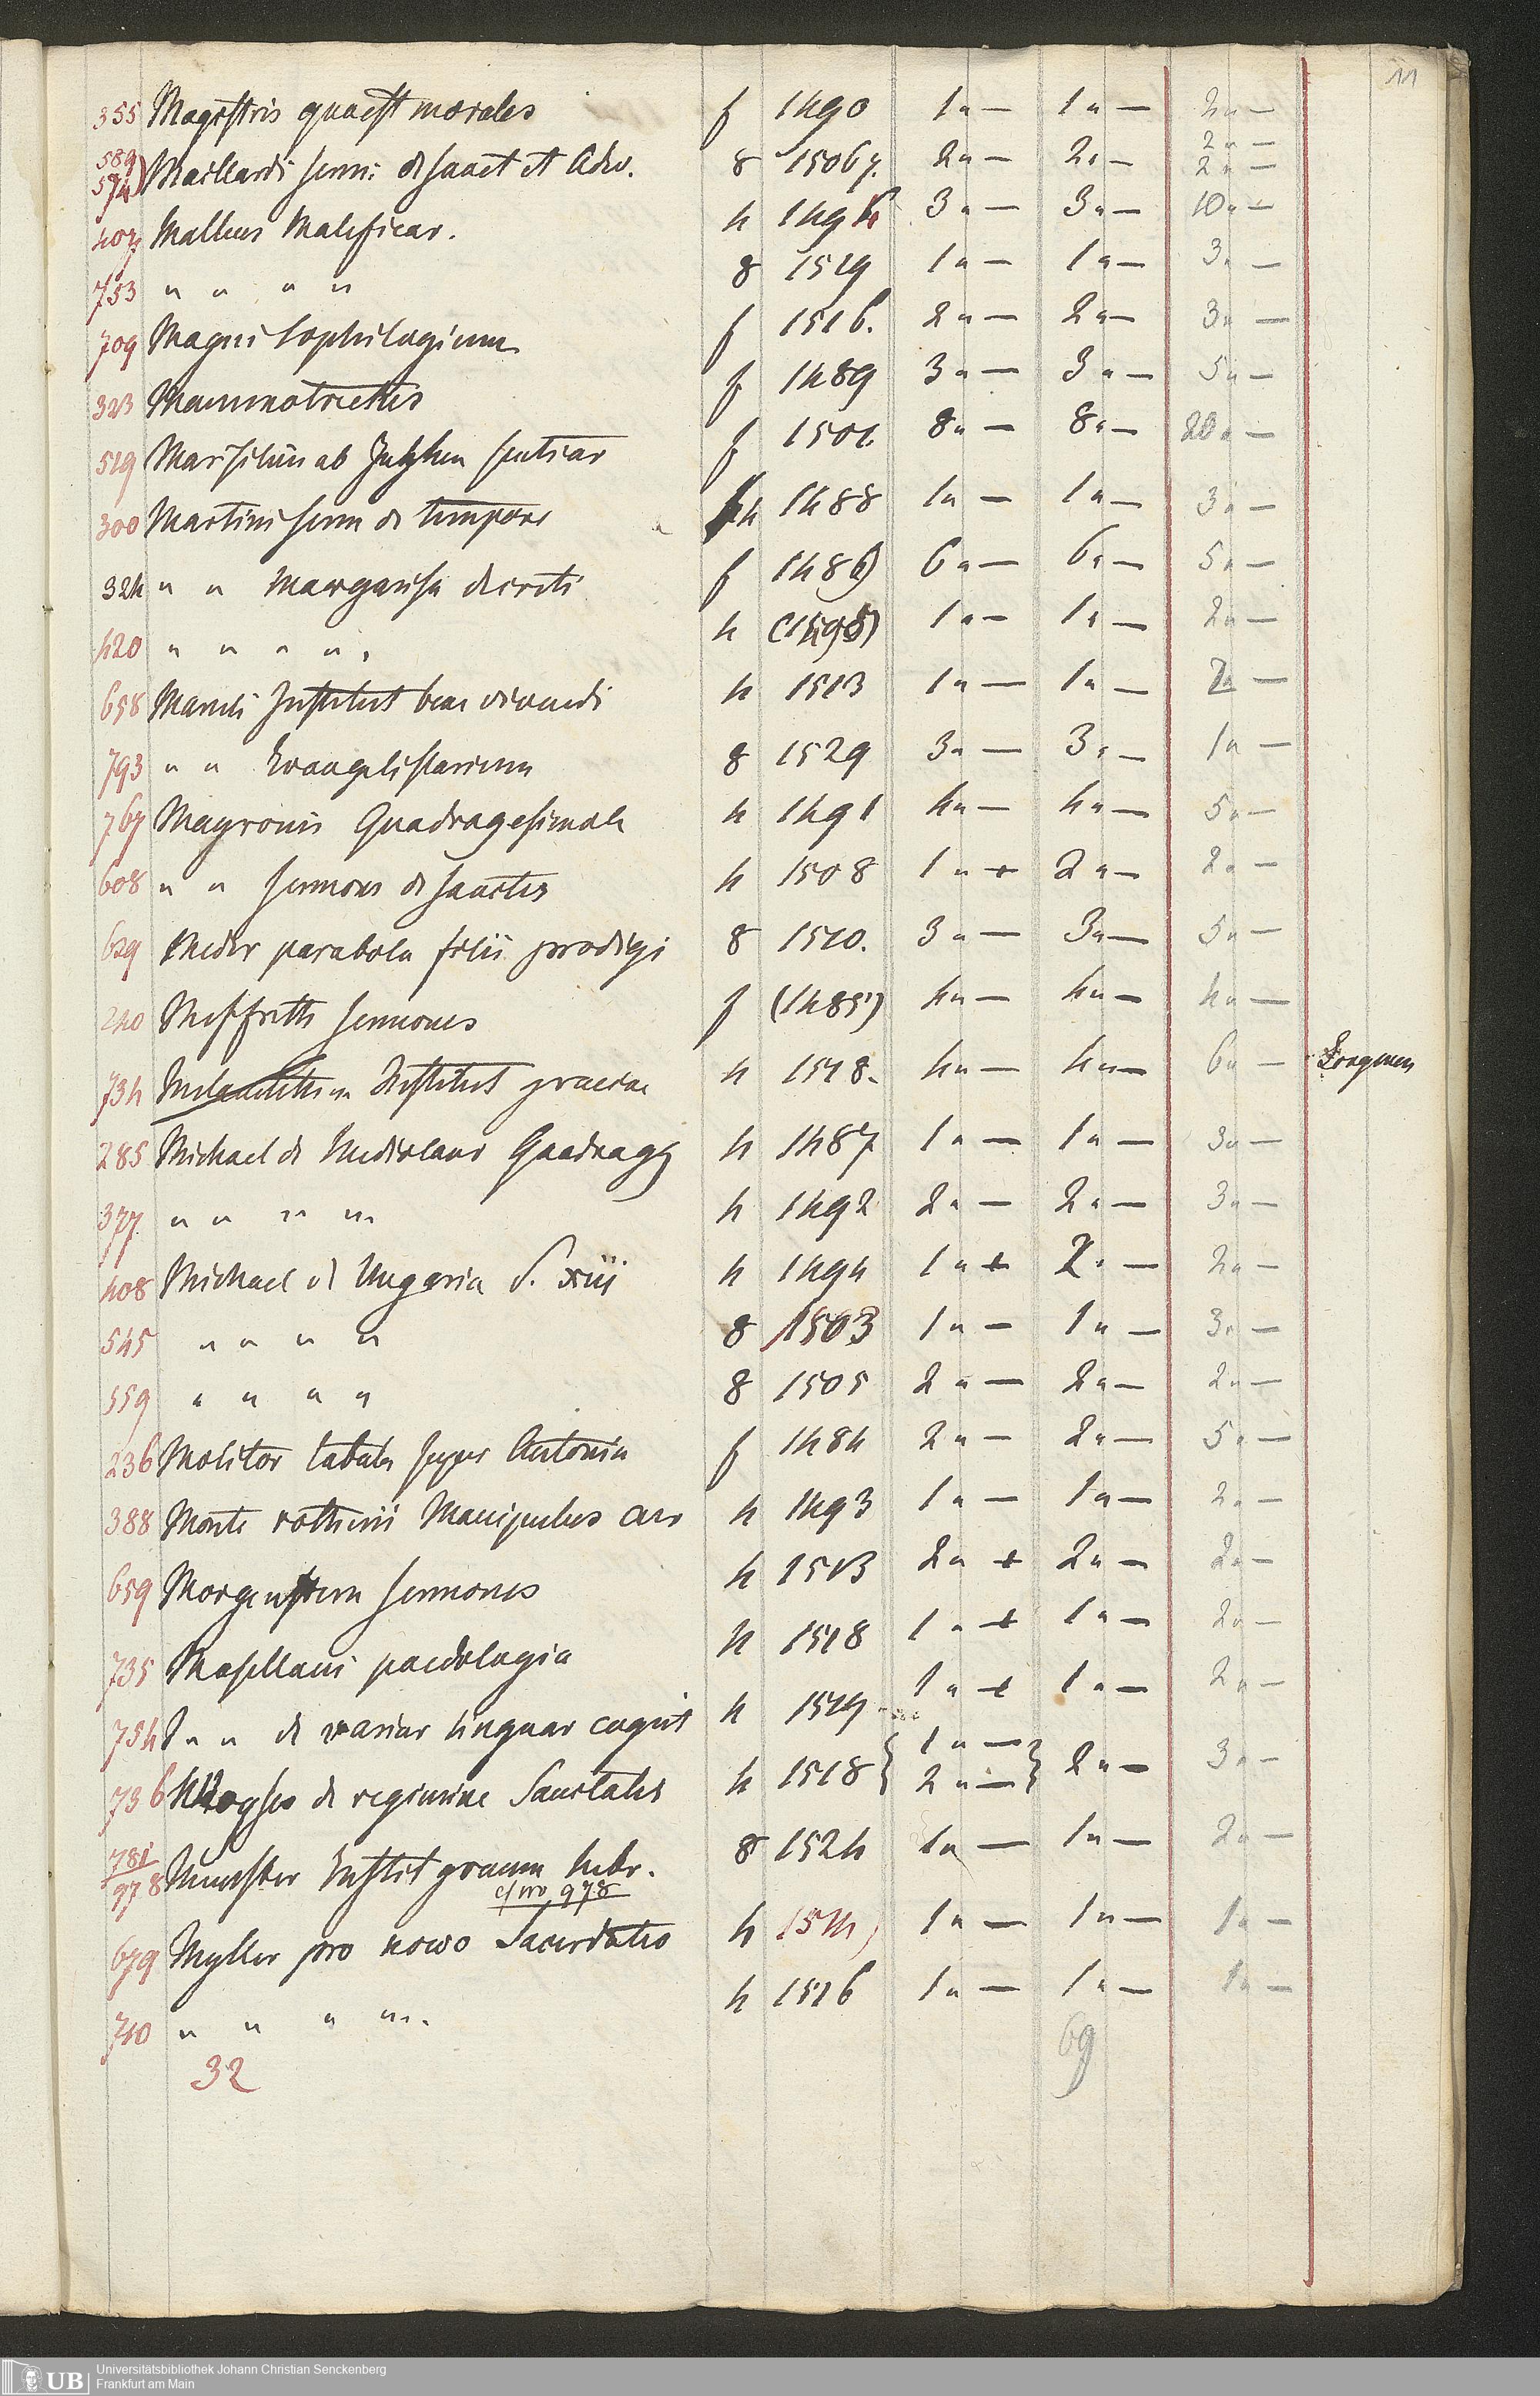 11
355 Magistris quaest morales f 1490 1 „ — 1 „ — 2 „ —
589 2 „ —
574) Maillardi serm: de sanct et Adv. 8 1506/7. 2 „ — 2 „ — 2 „ —
407 Malleus Maleficar. 4 1494 3 „ — 3 „ — 10 „ —
753 „ „ „ „ 8 1519 1 „ — 1 „ — 3 „ —
709 Magni Sophilogium f 1516. 2 „ — 2 „ — 3 „ —
323 Mammotrectus f 1489 3 „ — 3 „ — 5 „ —
519 Marsilius ab Inghen sentiar f 1501. 8 „ — 8 „ — 20 „ —
300 Martini serm de tempore 4 1488 1 „ — 1 „ — 3 „ —
324 „ „ Margarita decreti f 1486) 6 „ — 6 „ — 5 „ —
420 „ „ „ „ 4 (1495) 1 „ — 1 „ — 2 „ —
658 Maruli Institut bene vivendi 4 1513 1 „ — 1 „ — 2 „ —
793 „ „ Evangelistarium 8 1529 3 „ — 3 „ — 1 „ —
767 Mayronis Quadragesimale 4 1491 4 „ — 4 „ — 5 „ —
608 „ „ Sermones de Sanctis 4 1508 1 „ + 2 „ — 2 „ —
629 Meder parabola filii prodigi 8 1510. 3 „ — 3 „ — 5 „ —
240 Meffreth Sermones f (1485) 4 „ — 4 „ — 4 „ —
734 Melanchthon Institut graecae 4 1518. 4 „ — 4 „ — 6 „ — Fragmen
285 Michael de Mediolano Quadrag 4 1487 1 „ — 1 „ — 3 „ —
377 „ „ „ „ 4 1492 2 „ — 2 „ — 3 „ —
408 Michael de Ungaria S. xiii 4 1494 1 „ + 2 „ — 2 „ —
545 „ „ „ „ 8 1503 1 „ — 1 „ — 3 „ —
559 „ „ „ „ 8 1505 2 „ — 2 „ — 2 „ —
236 Molitor tabula super Antonin f 1484 2 „ — 2 „ — 5 „ —
388 Monte rotherii Manipulus cur 4 1493 1 „ — 1 „ — 2 „ —
659 Morgenstern Sermones 4 1513 2 „ + 2 „ — 2 „ —
735 Mosellani paedologia 4 1518 1 „ + 1 „ — 2 „ —
754 „ „ de variar linguar cognit 4 1519 1 „ + 1 „ — 2 „ —
736 Moyses de regimine Sanitatis 4 1518 { 1 „ — 2 „ — } 2 „ — 3 „ —
781
978 Munster Instit gramm hebr. 8 1524 1 „ — 1 „ — 2 „ —
cf no 978
679 Myller pro novo Sacerdotio 4 1514) 1 „ — 1 „ — 1 „ —
710 „ „ „ „ 4 1516 1 „ — 1 „ — 1 „ —
32 69
UB Universitätsbibliothek Johann Christian Senckenberg
Frankfurt am Main